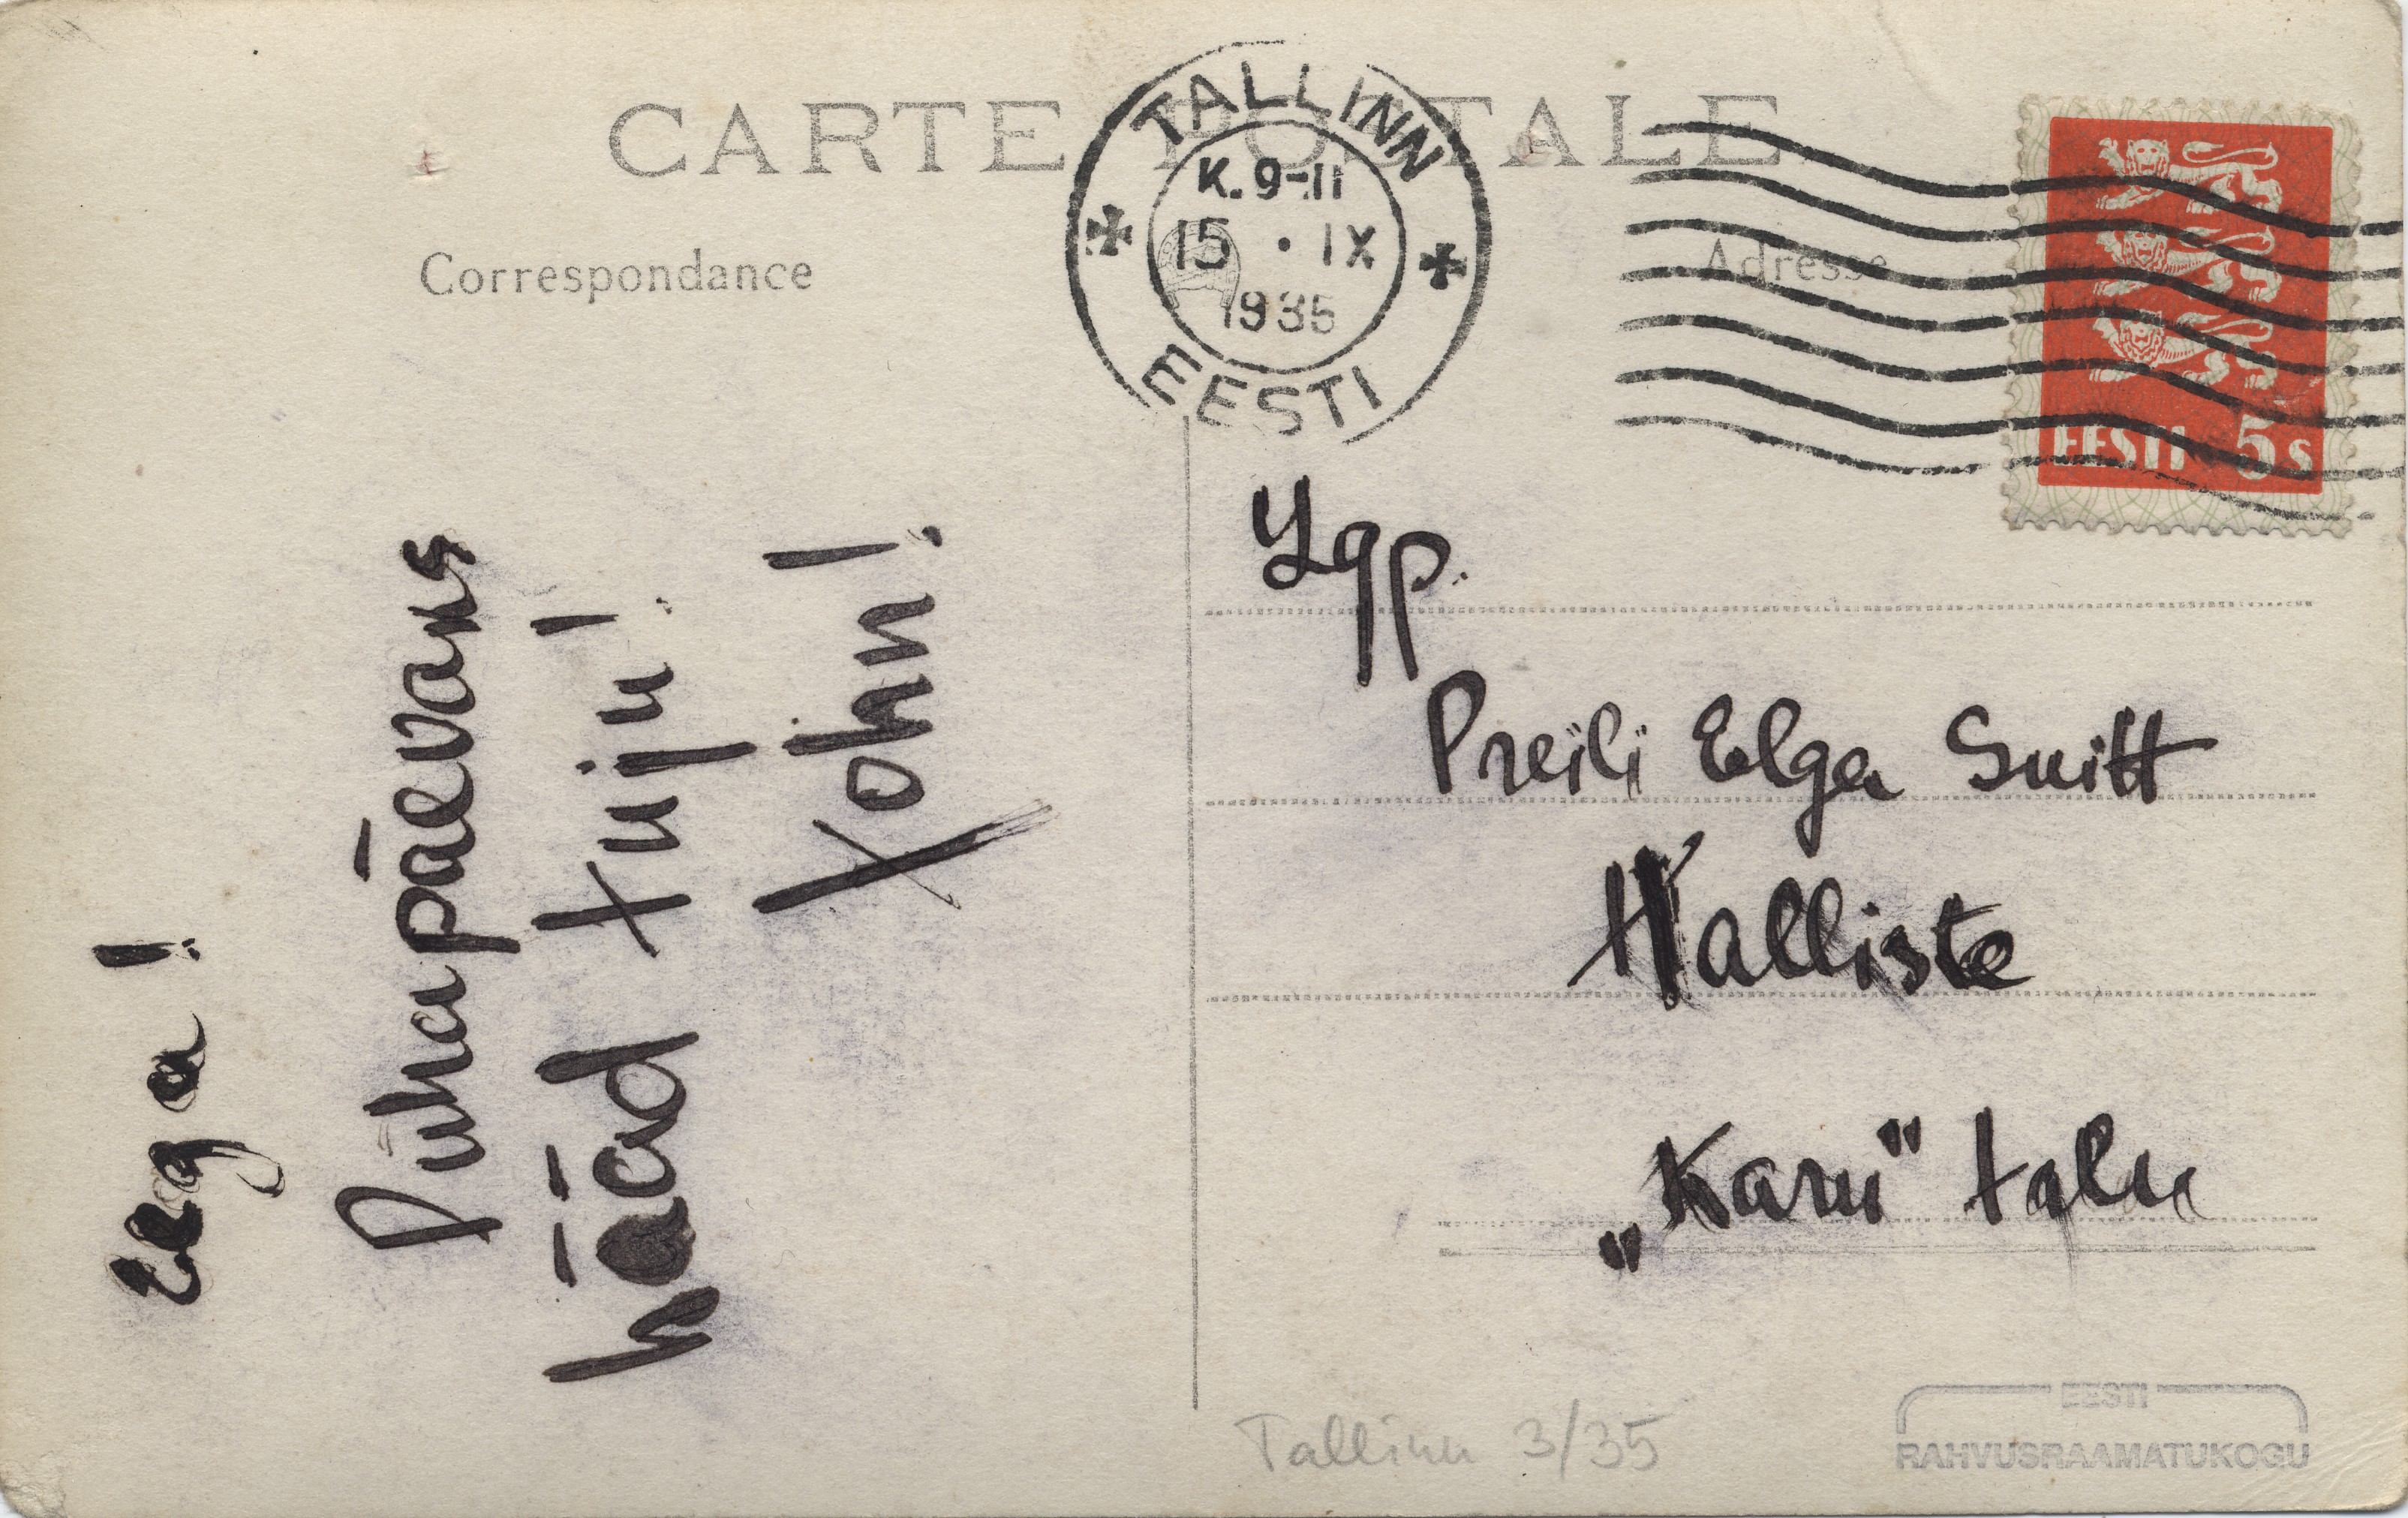 CARTE POSTALE
TALLINN
K. 9-11
15 • IX
1935
EESTI
Correspondance
Adresse
EESTI 5s
Elga!
Pühapäevans
hääd tuju!
John!
Lgp.
Preili Elga Suitt
Halliste
„Karu" talu
Tallinn 3/35
EESTI
RAHVUSRAAMATUKOGU